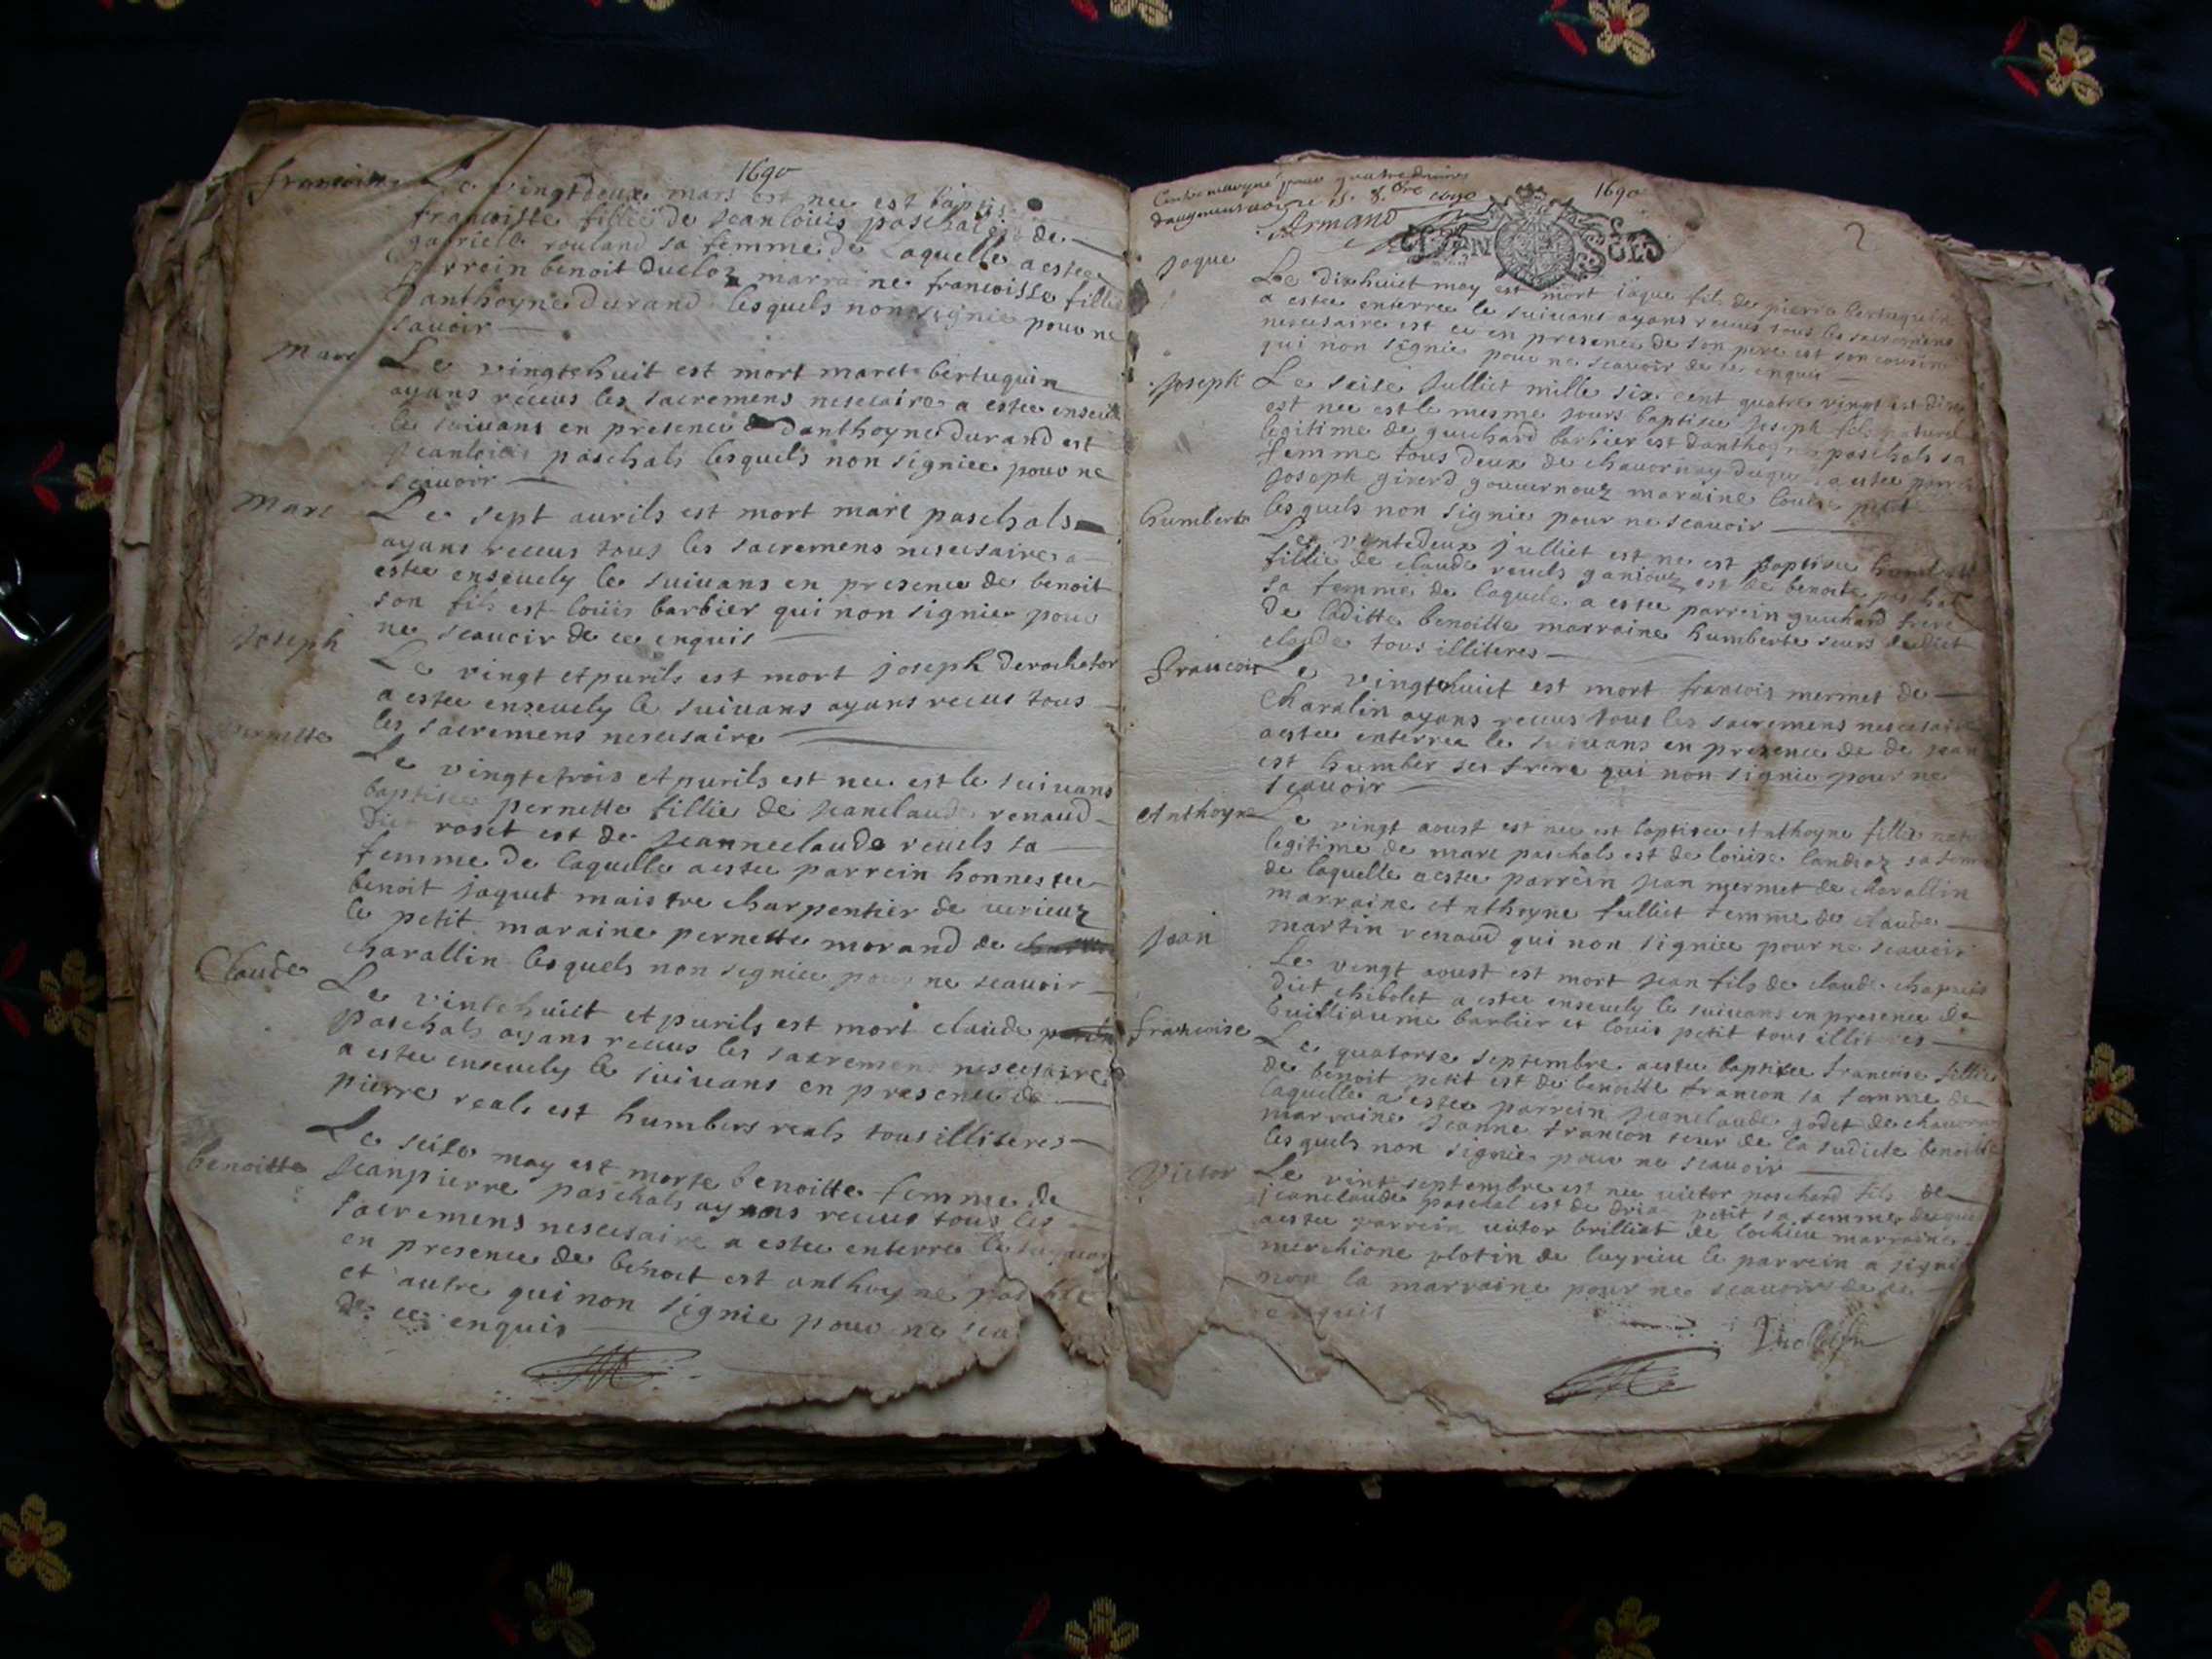 1690
francoise Le vingtdeux mars est nee est baptis
francoisse fillie de Jean louis paschal de
gabrielle rouland sa femme de Laquelle a estee
parrein benoit ducloz marraine francoisse fillie
Danthoyne durand lesquels non signie pour ne
savoir
Marc Le vingtehuit est mort marct bertuquin
ayans receus les sacremens nesecaire a estee
le suivans en presence danthoyne durand est
Jeanlouis paschals lesquels non signiee pour ne
scavoir
Marc Le sept avrils est mort marc paschals
ayans receus tous les sacremens nesecsaires a
estee ensevely le suivans en presence de benoit
son fils est louis barbier qui non signiee pour
ne scavoir de ce enquis
Joseph Le vingt et purils est mort joseph derochefor
a estee ensevely le suivans ayans receus tous
les sacremens nesecsaire
pernette Le vingtetrois et purils est nee est le suivans
baptisee pernette fillie de Jeanclaude renaud
dit roset est de Jeanneclaude reuels sa
femme de laquelle a estee parrein honneste
benoit jaquet maistre charpentier de virieuz
le petit maraine pernette morand de
charallin lesquels non signiee pour ne scavoir
Claude Le vintehuict et purils est mort claude
paschals ayans receus les sacremens nesecsaire
a estee ensevely le suivans en presence de
pierre reals est humbers reals tous illiteres
Le seise may est morte benoitte femme de
benoitte Jeanpierre paschals ayans receus tous les
sacremens nesecsaire a estee enterree le suivans
en presence de benoit est anthoyne
et autre qui non signie pour ne sca
de ce enquis
Contremarqué pour quatre deniers
daugmentation 15 8bre 1690
Armand
1690
2
Jaque Le dixhuict may est mort jaque fils de pierre bertuquin
a estee enterree le suivans ayans receus tous les sacremens
nesecsaire est ce en presence de son pere est son cousin
qui non signie pour ne scavoir de ce enquis
Joseph Le seise Julliet mille six cent quatre vingt est dix
est nee est le mesme jours baptisee Joseph fils naturel
legitime de guichard barbier est danthoyne paschals sa
femme tous deux de chavornay duquel a estee parrein
Joseph girerd gouvernouz maraine louise petit
lesquels non signie pour ne scavoir
humberte Le vintedeux julliet est nee est baptisee humberte
fillie de claude reuels ganiouz est de benoite paschal
sa femme de laquele a estee parrein guichard frere
de laditte benoitte marraine humberte seurs dudict
claude tous illiteres
Francois Le vingtehuict est mort francois mermet de
Charalin ayans receus tous les sacremens nesecsaire
a estee enterree le suivans en presence de de Jean
est humber ses frere qui non signie pour ne
scavoir
Anthoyne Le vingt aoust est nee est baptisee Anthoyne fillie
legitime de marc paschals est de louise landroz sa femme
de laquelle a estee parrein Jean mermet de charallin
marraine Anthoyne Julliet femme de claude
martin renaud qui non signiee pour ne scavoir
Jean Le vingt aoust est mort Jean fils de claude chapuis
dict chibolet a estee ensevely le suivans en presence de
Guilliaume barbier et louis petit tous illiteres
francoise Le quatorse septembre a estee baptisee francoise fillie
de benoit petit est de benoitte francon sa femme de
laquelle a estee parrein Jeanclaude jodet de
marraine Jeanne francon seur de la sudicte benoitte
lesquels non signie pour ne scavoir
Victor Le vint septembre est nee victor paschard fils de
jeanclaude paschal est de petit sa femme duquel
a estee parrein victor brilliat de lochieu marraine
merchione plotin de luyrieu le parrein a signé
non la marraine pour ne scavoir de ce
enquis